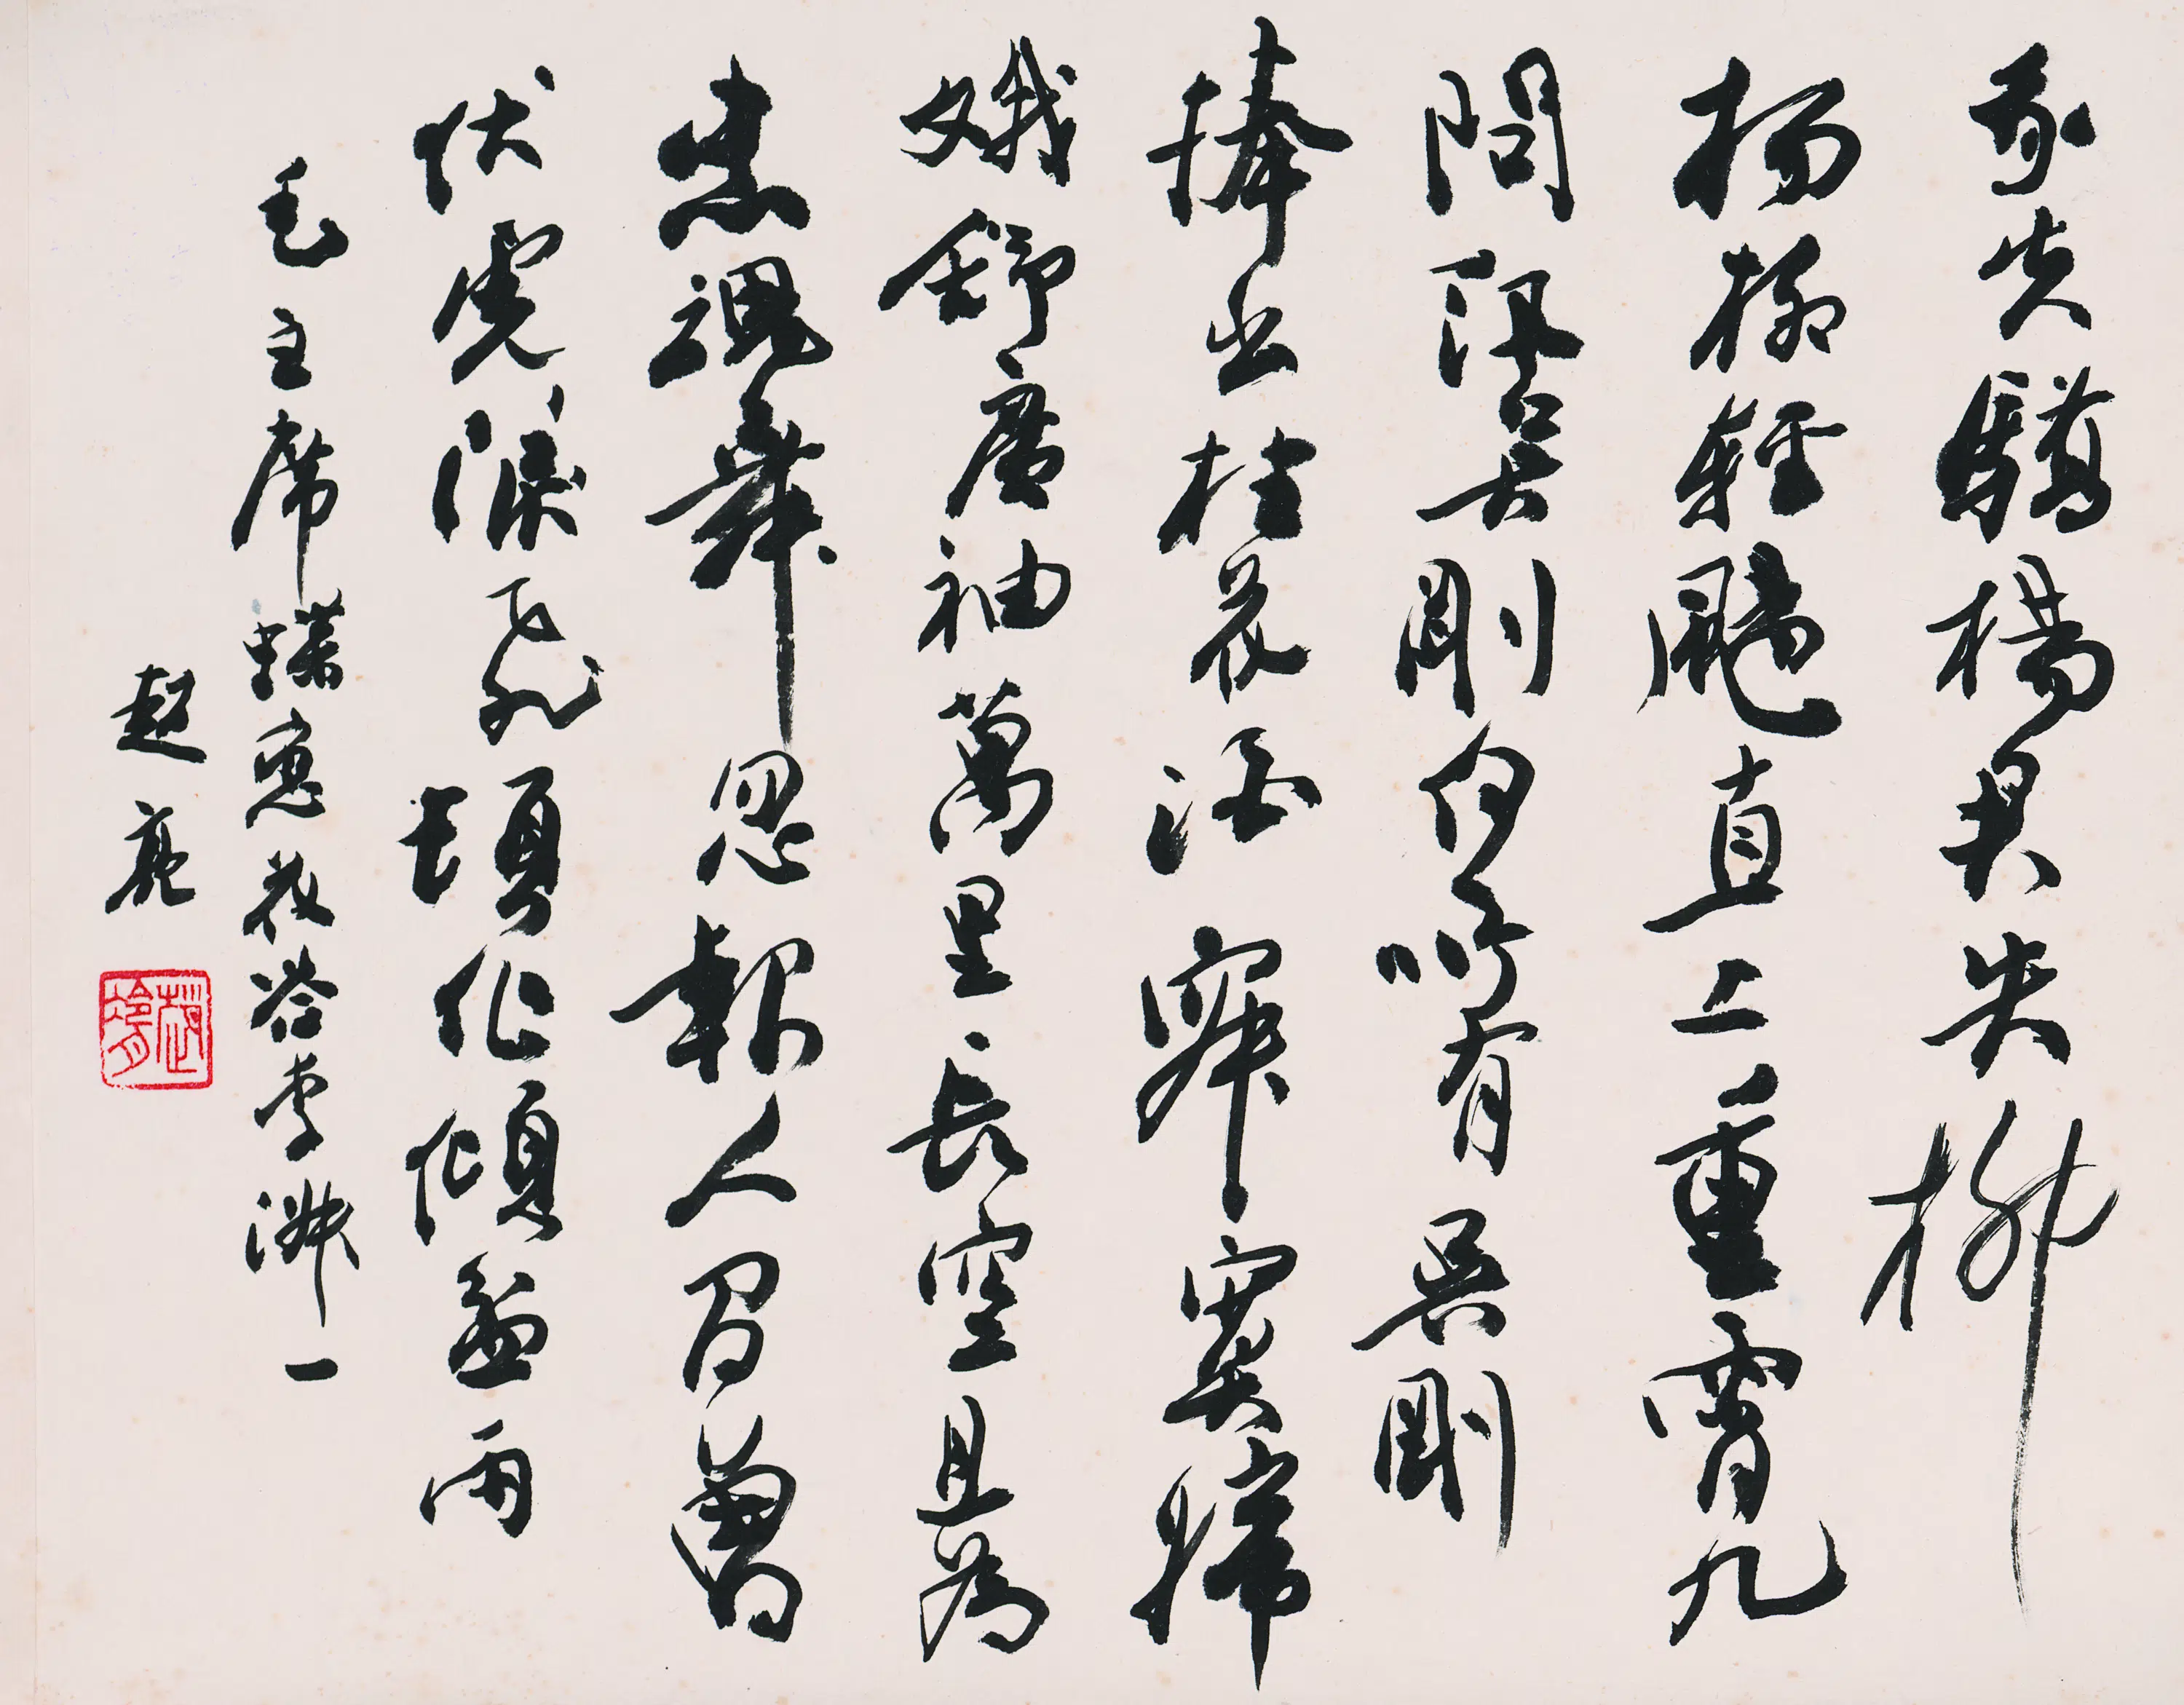 我失驕楊君失柳
楊柳輕颺直上重霄九
問訊吳剛何所有吳剛
捧出桂花酒寂寞嫦
娥舒廣袖萬里長空且為
忠魂舞忽報人間曾
伏虎淚飛頓作傾盆雨
毛主席蝶戀花答李淑一